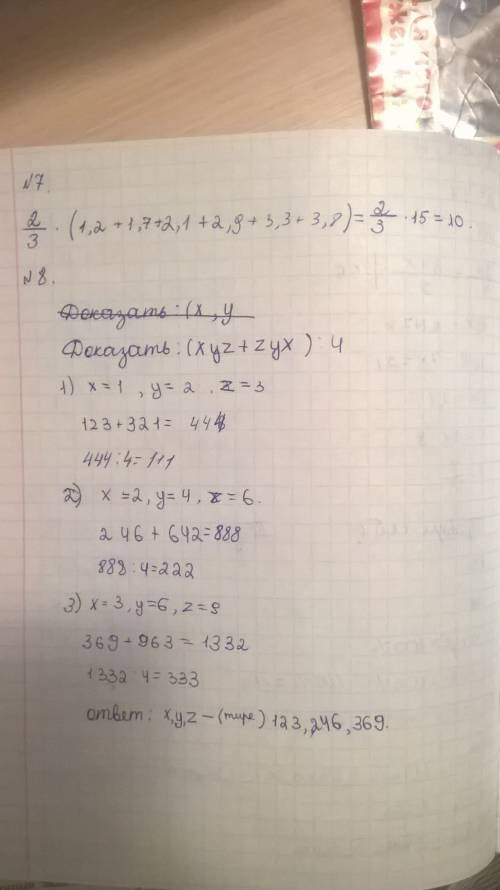 №7.
2/3 · (1,2+1,7+2,1+2,9+3,3+3,8)=2/3 ·15=10.
№8.
Доказать:(x,y
Доказать:(xyz+zyx):4
1) x=1, y=2, z=3
123+321= 444
444:4=111
2) x=2, y=4, z=6.
246+642=888
888:4=222
3) x=3, y=6, z=9
369+963=1332
1332:4=333
ответ: x,y,z-(тире) 123, 246, 369.